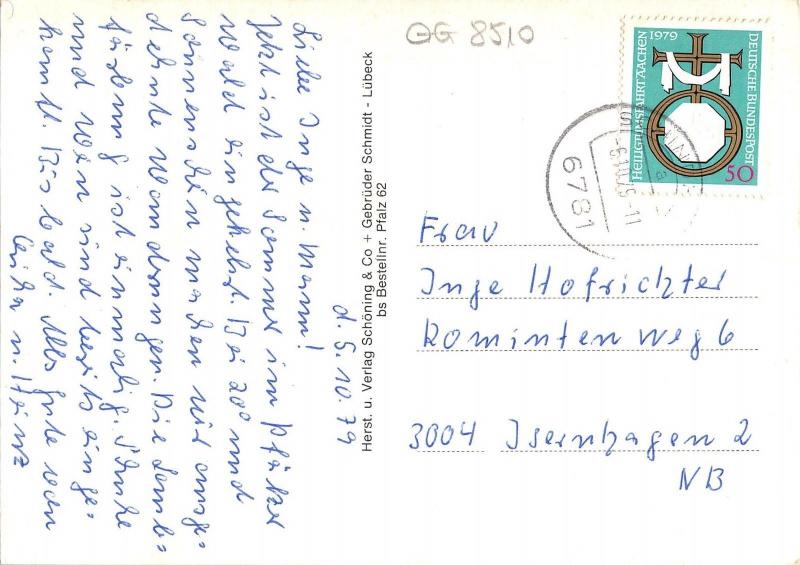 GG 8510
d. 5. 10. 79
Liebe Inge u. Mann!
Jetzt ist der Sommer im Pfälzer
Wald eingekehrt. Bei 20° und
Sonnenschein machen wir ausge-
dehnte Wanderungen. Die Laub-
färbung ist einmalig.
und Wein sind bereits einge-
kauft. Bis bald. Alles Gute von
u. Heinz
Herst. u. Verlag Schöning & Co + Gebrüder Schmidt - Lübeck
bs Bestellnr. Pfalz 62
1979
HEILIGTUMSFAHRT AACHEN
DEUTSCHE BUNDESPOST
50
6781
Frau
Inge Hofrichter
Rominten Weg 6
3004 Isernhagen 2
NB